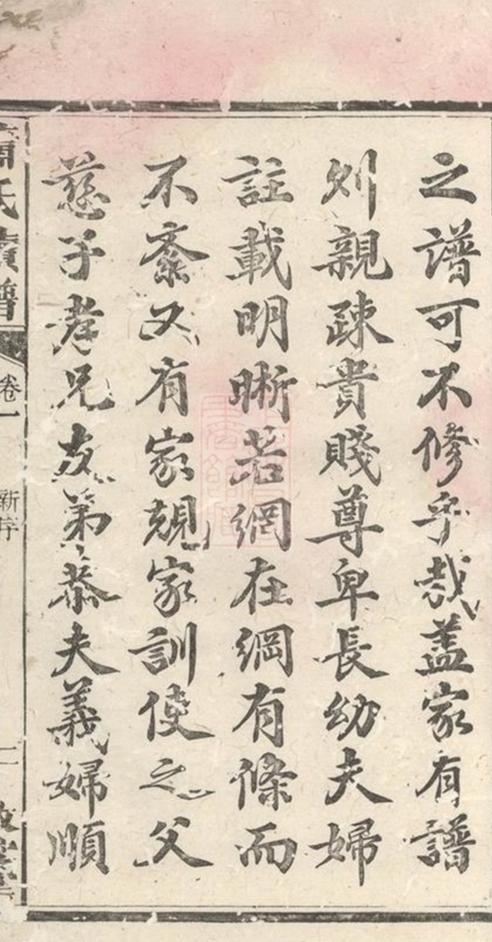 之譜可不修乎哉盖家有譜
則親疎貴賤尊卑長幼夫婦
註載明晰若網在綱有條而
不紊又有家規家訓使之父
慈子孝兄友弟恭夫義婦順
氏續譜
卷一
新序
二